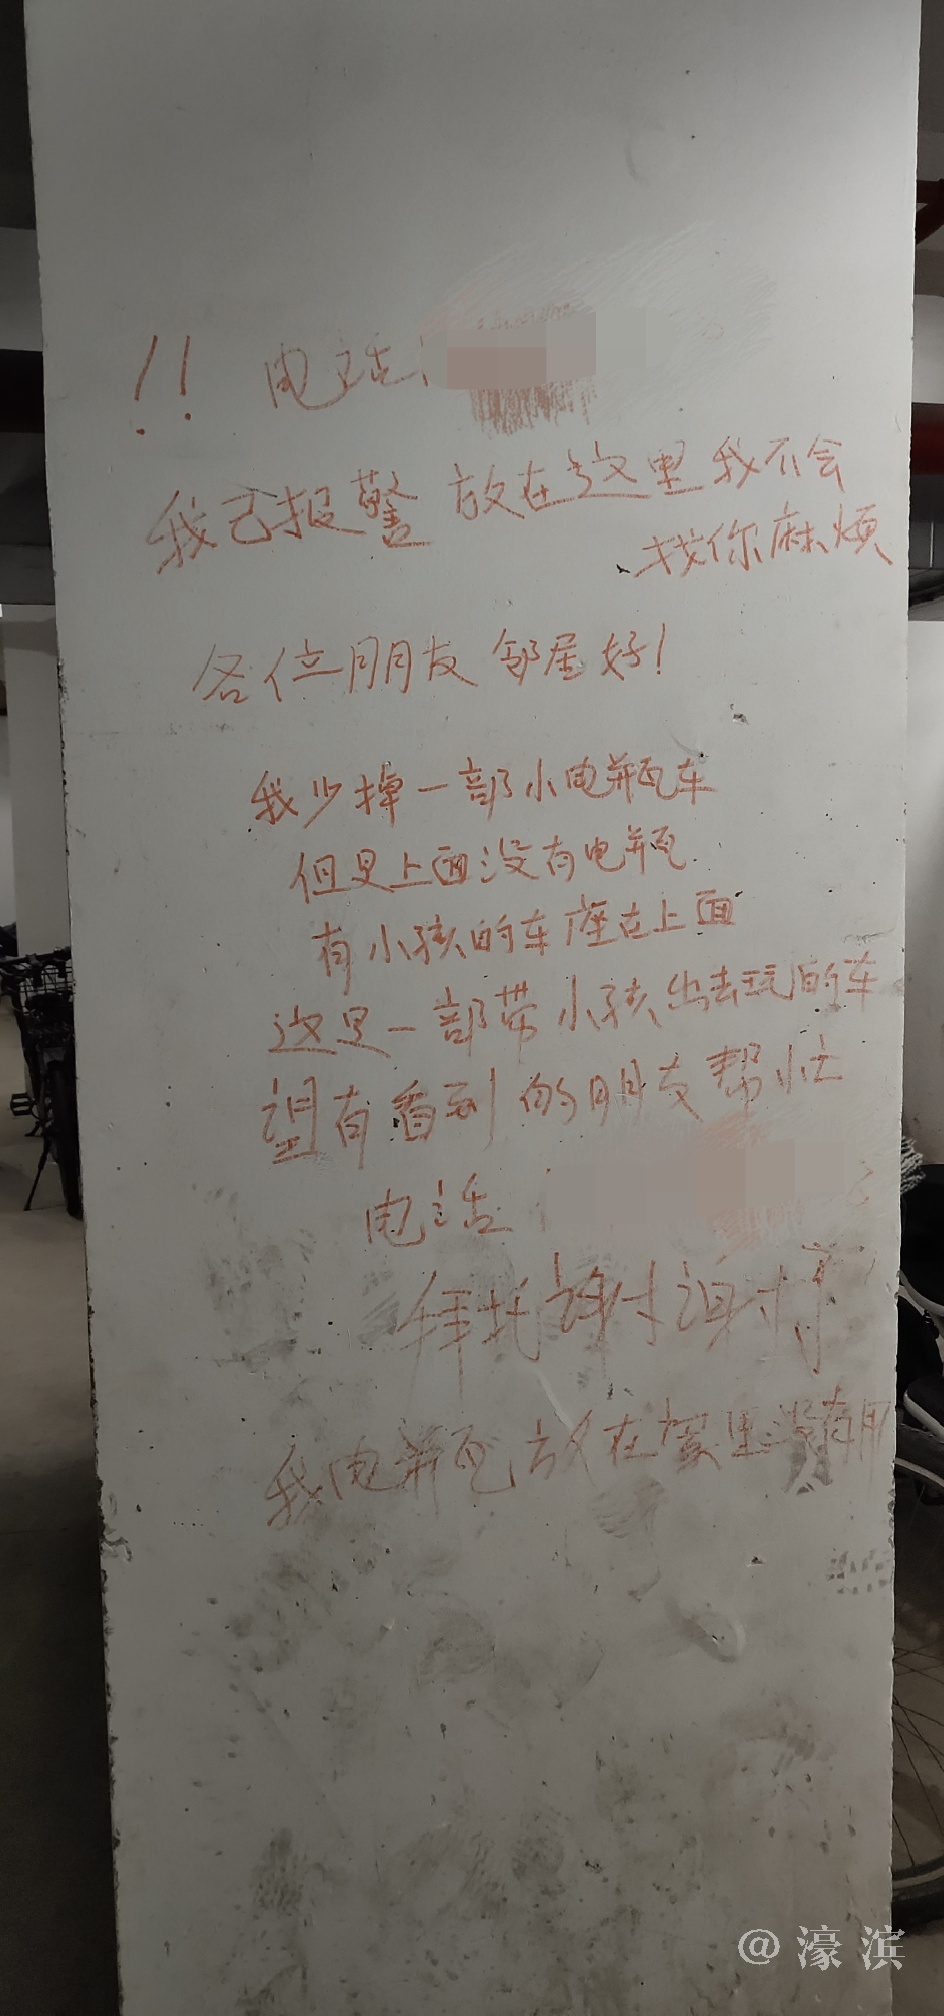 !! 电话:
我已报警 放在这里我不会
找你麻烦
各位朋友 邻居好!
我少掉一部小电瓶车
但是上面没有电瓶
有小孩的车座在上面
这是一部带小孩出去玩的车
望有看到的朋友帮忙
电话:
拜托谢谢
我电瓶放在家里没有用
@濠滨